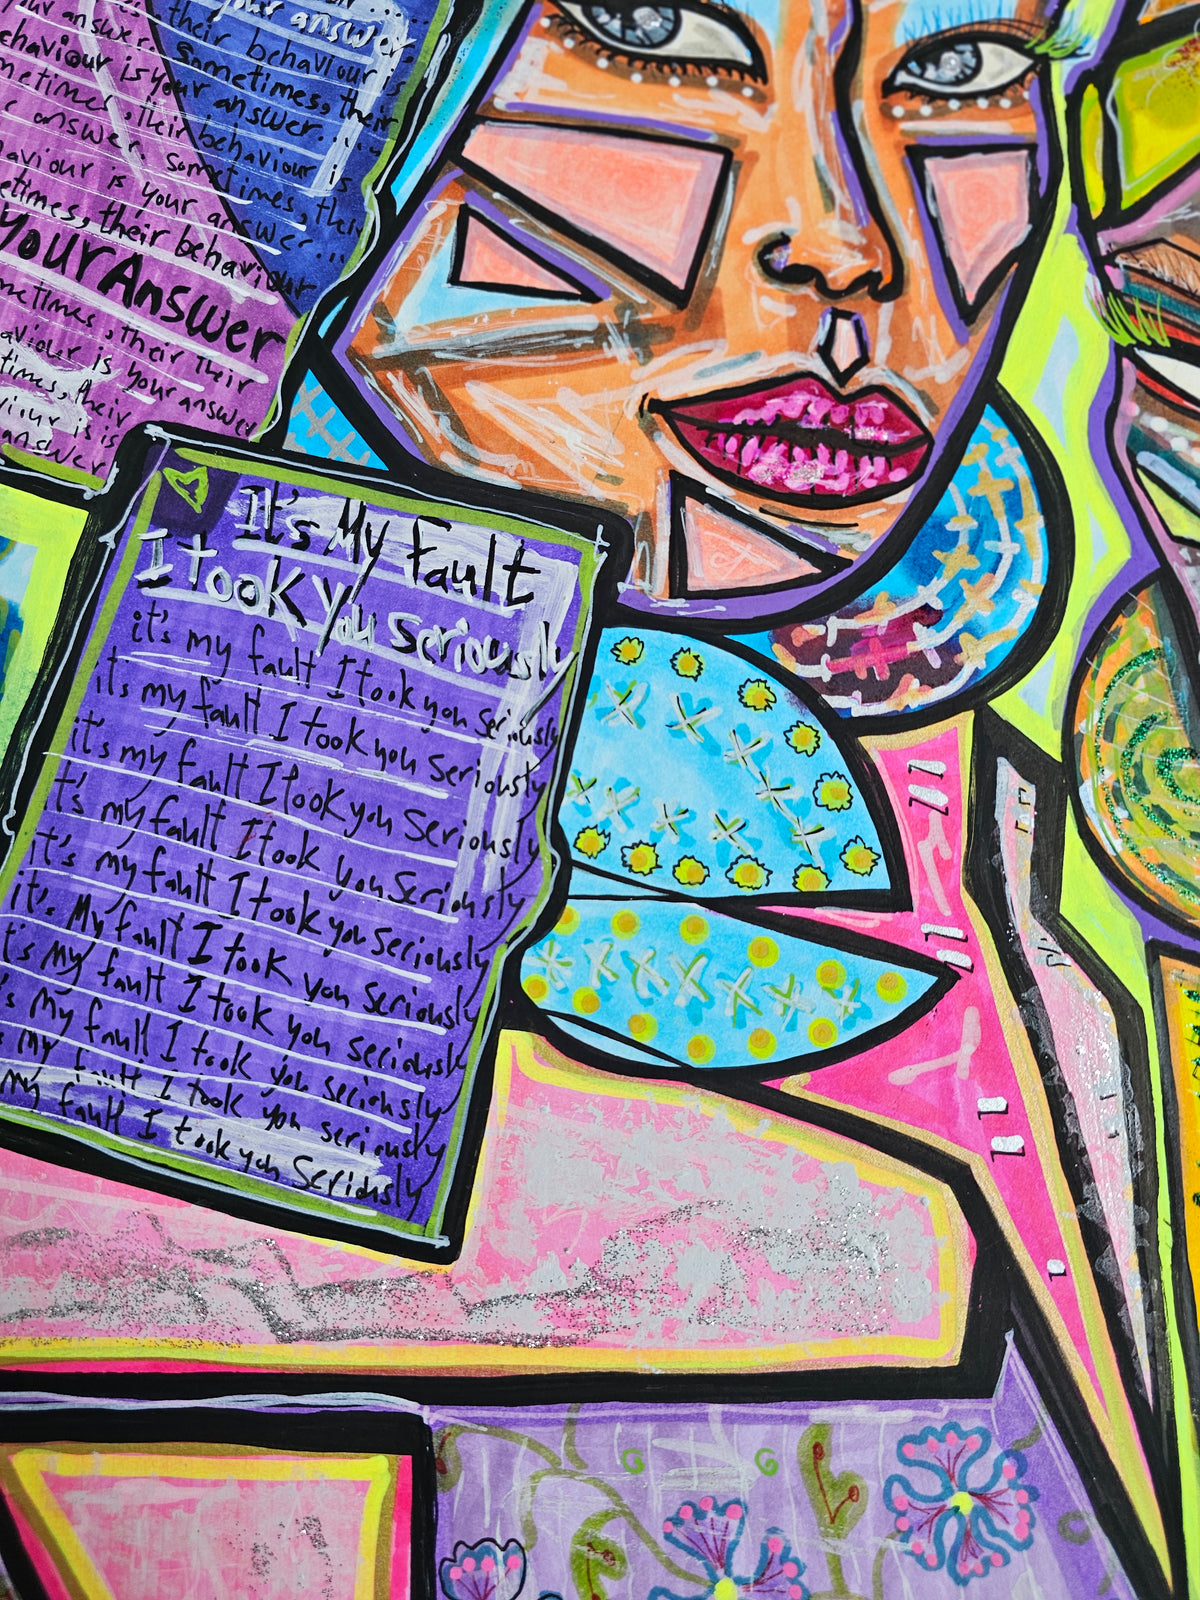 your answer.
your answer. their behaviour is
behaviour is your answer. Sometimes, their
sometimes, their behaviour is your answer...
answer. Sometimes, their behaviour is
behaviour is your answer. Sometimes, their
sometimes, their behaviour is your answer...
Your Answer
sometimes, their behaviour
sometimes, their their
behaviour is your answer
times, their
is is
answer
It's My Fault
I took you seriously
it's my fault I took you seriously
it's my fault I took you seriously
it's my fault I took you seriously
it's my fault I took you seriously
it's my fault I took you seriously
it's My fault I took you seriously
it's my fault I took you seriously
's my fault I took you seriously
my fault I took you seriously
my fault I took you seriously